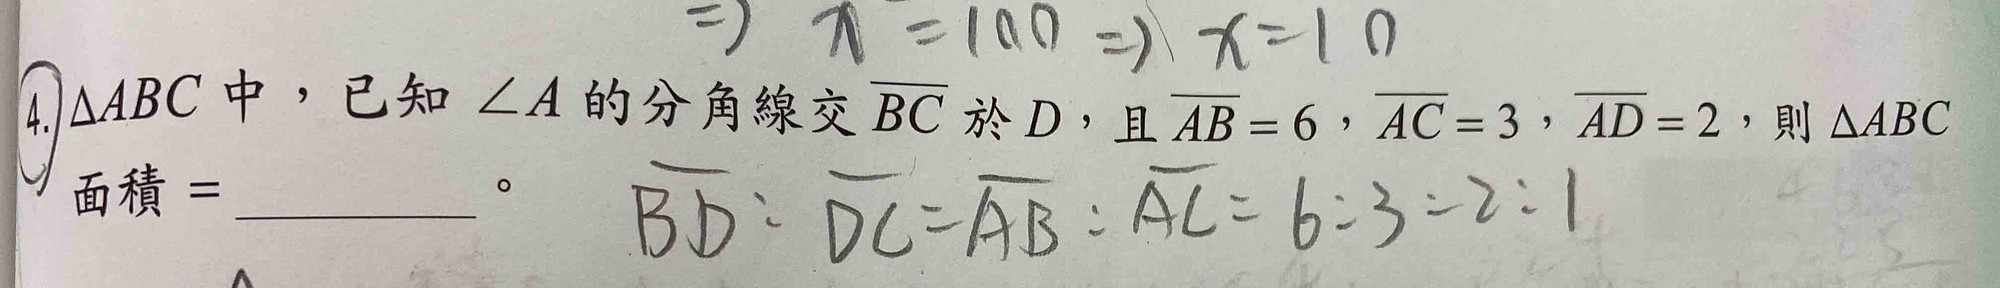 ⇒ x = 100 ⇒ x = 10
4. △ABC 中，已知 ∠A 的分角線交 \overline{BC} 於 D，且 \overline{AB} = 6，\overline{AC} = 3，\overline{AD} = 2，則 △ABC
面積 = ＿＿＿＿＿。
\overline{BD} : \overline{DC} = \overline{AB} : \overline{AC} = 6 : 3 = 2 : 1